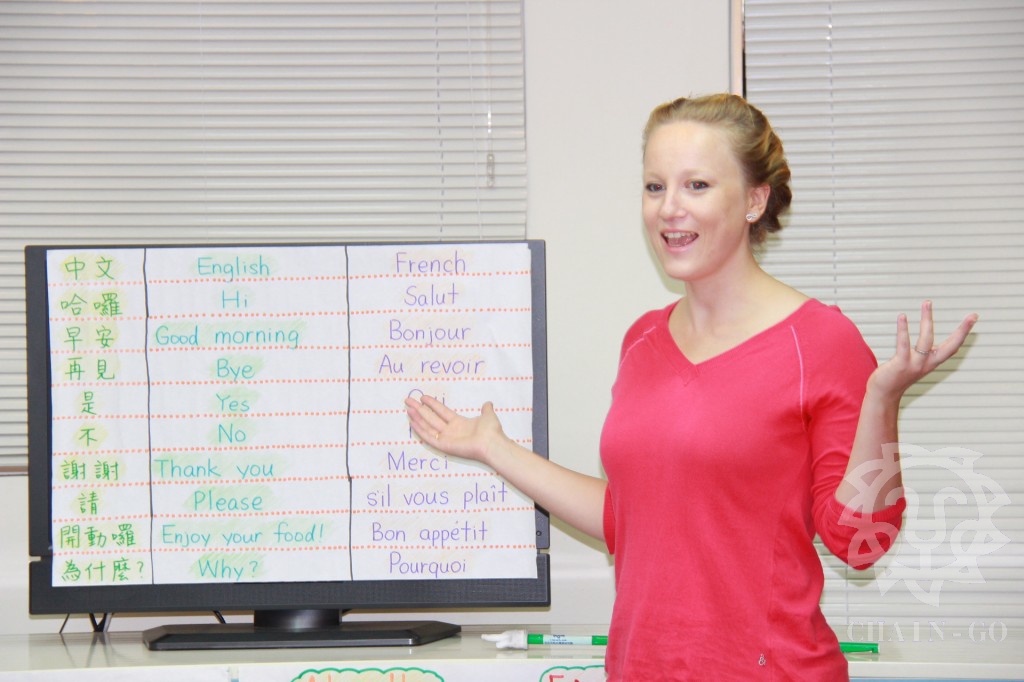 中文 English French
哈囉 Hi Salut
早安 Good morning Bonjour
再見 Bye Au revoir
是 Yes Oui
不 No
謝謝 Thank you Merci
請 Please s'il vous plaît
開動囉 Enjoy your food! Bon appétit
為什麼? Why? Pourquoi
CHAIN-GO